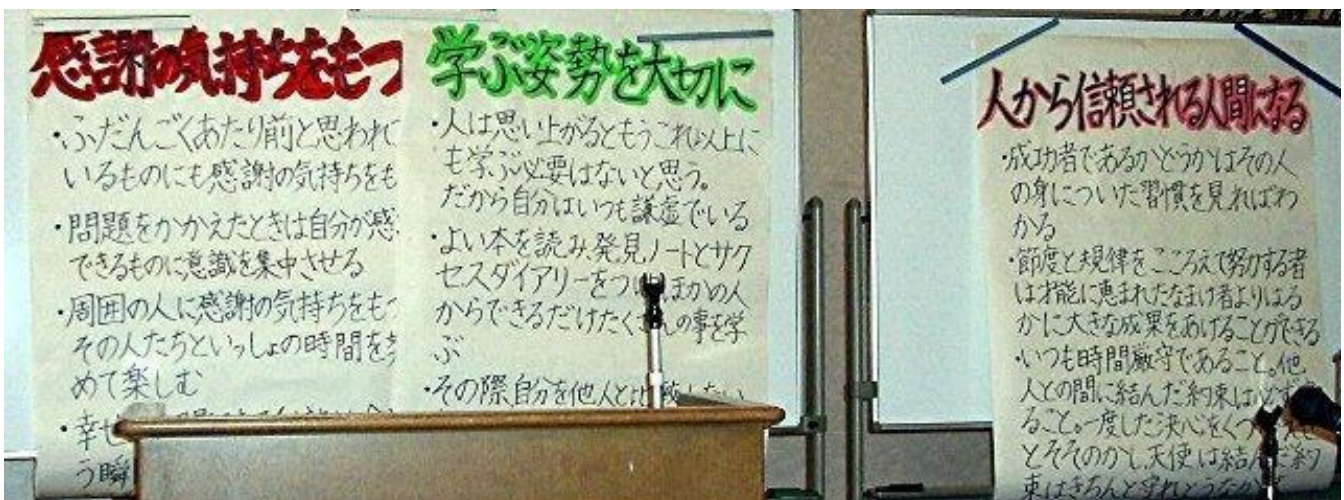 感謝の気持ちをもつ
・ふだんごくあたり前と思われて
いるものにも感謝の気持ちをも
・問題をかかえたときは自分が感
できるものに意識を集中させる
・周囲の人に感謝の気持ちをもつ
その人たちといっしょの時間を
めて楽しむ
・幸せ
う瞬
学ぶ姿勢を大切に
・人は思い上がるともうこれ以上に
も学ぶ必要はないと思う。
だから自分はいつも謙虚でいる
・よい本を読み、発見ノートとサク
セスダイアリーをつ ほかの人
からできるだけたくさんの事を学
ぶ
・その際自分を他人と比較しない
人から信頼される人間になる
・成功者であるかどうかはその人
の身についた習慣を見ればわ
かる
・節度と規律をこころえて努力する者
は才能に恵まれたなまけ者よりはる
かに大きな成果をあげることができる
・いつも時間厳守であること。他
人との間に結んだ約束は必ず
ること。一度した決心をくつ
とそそのかし、天使は結んだ約
束はきちんと守れとうながす